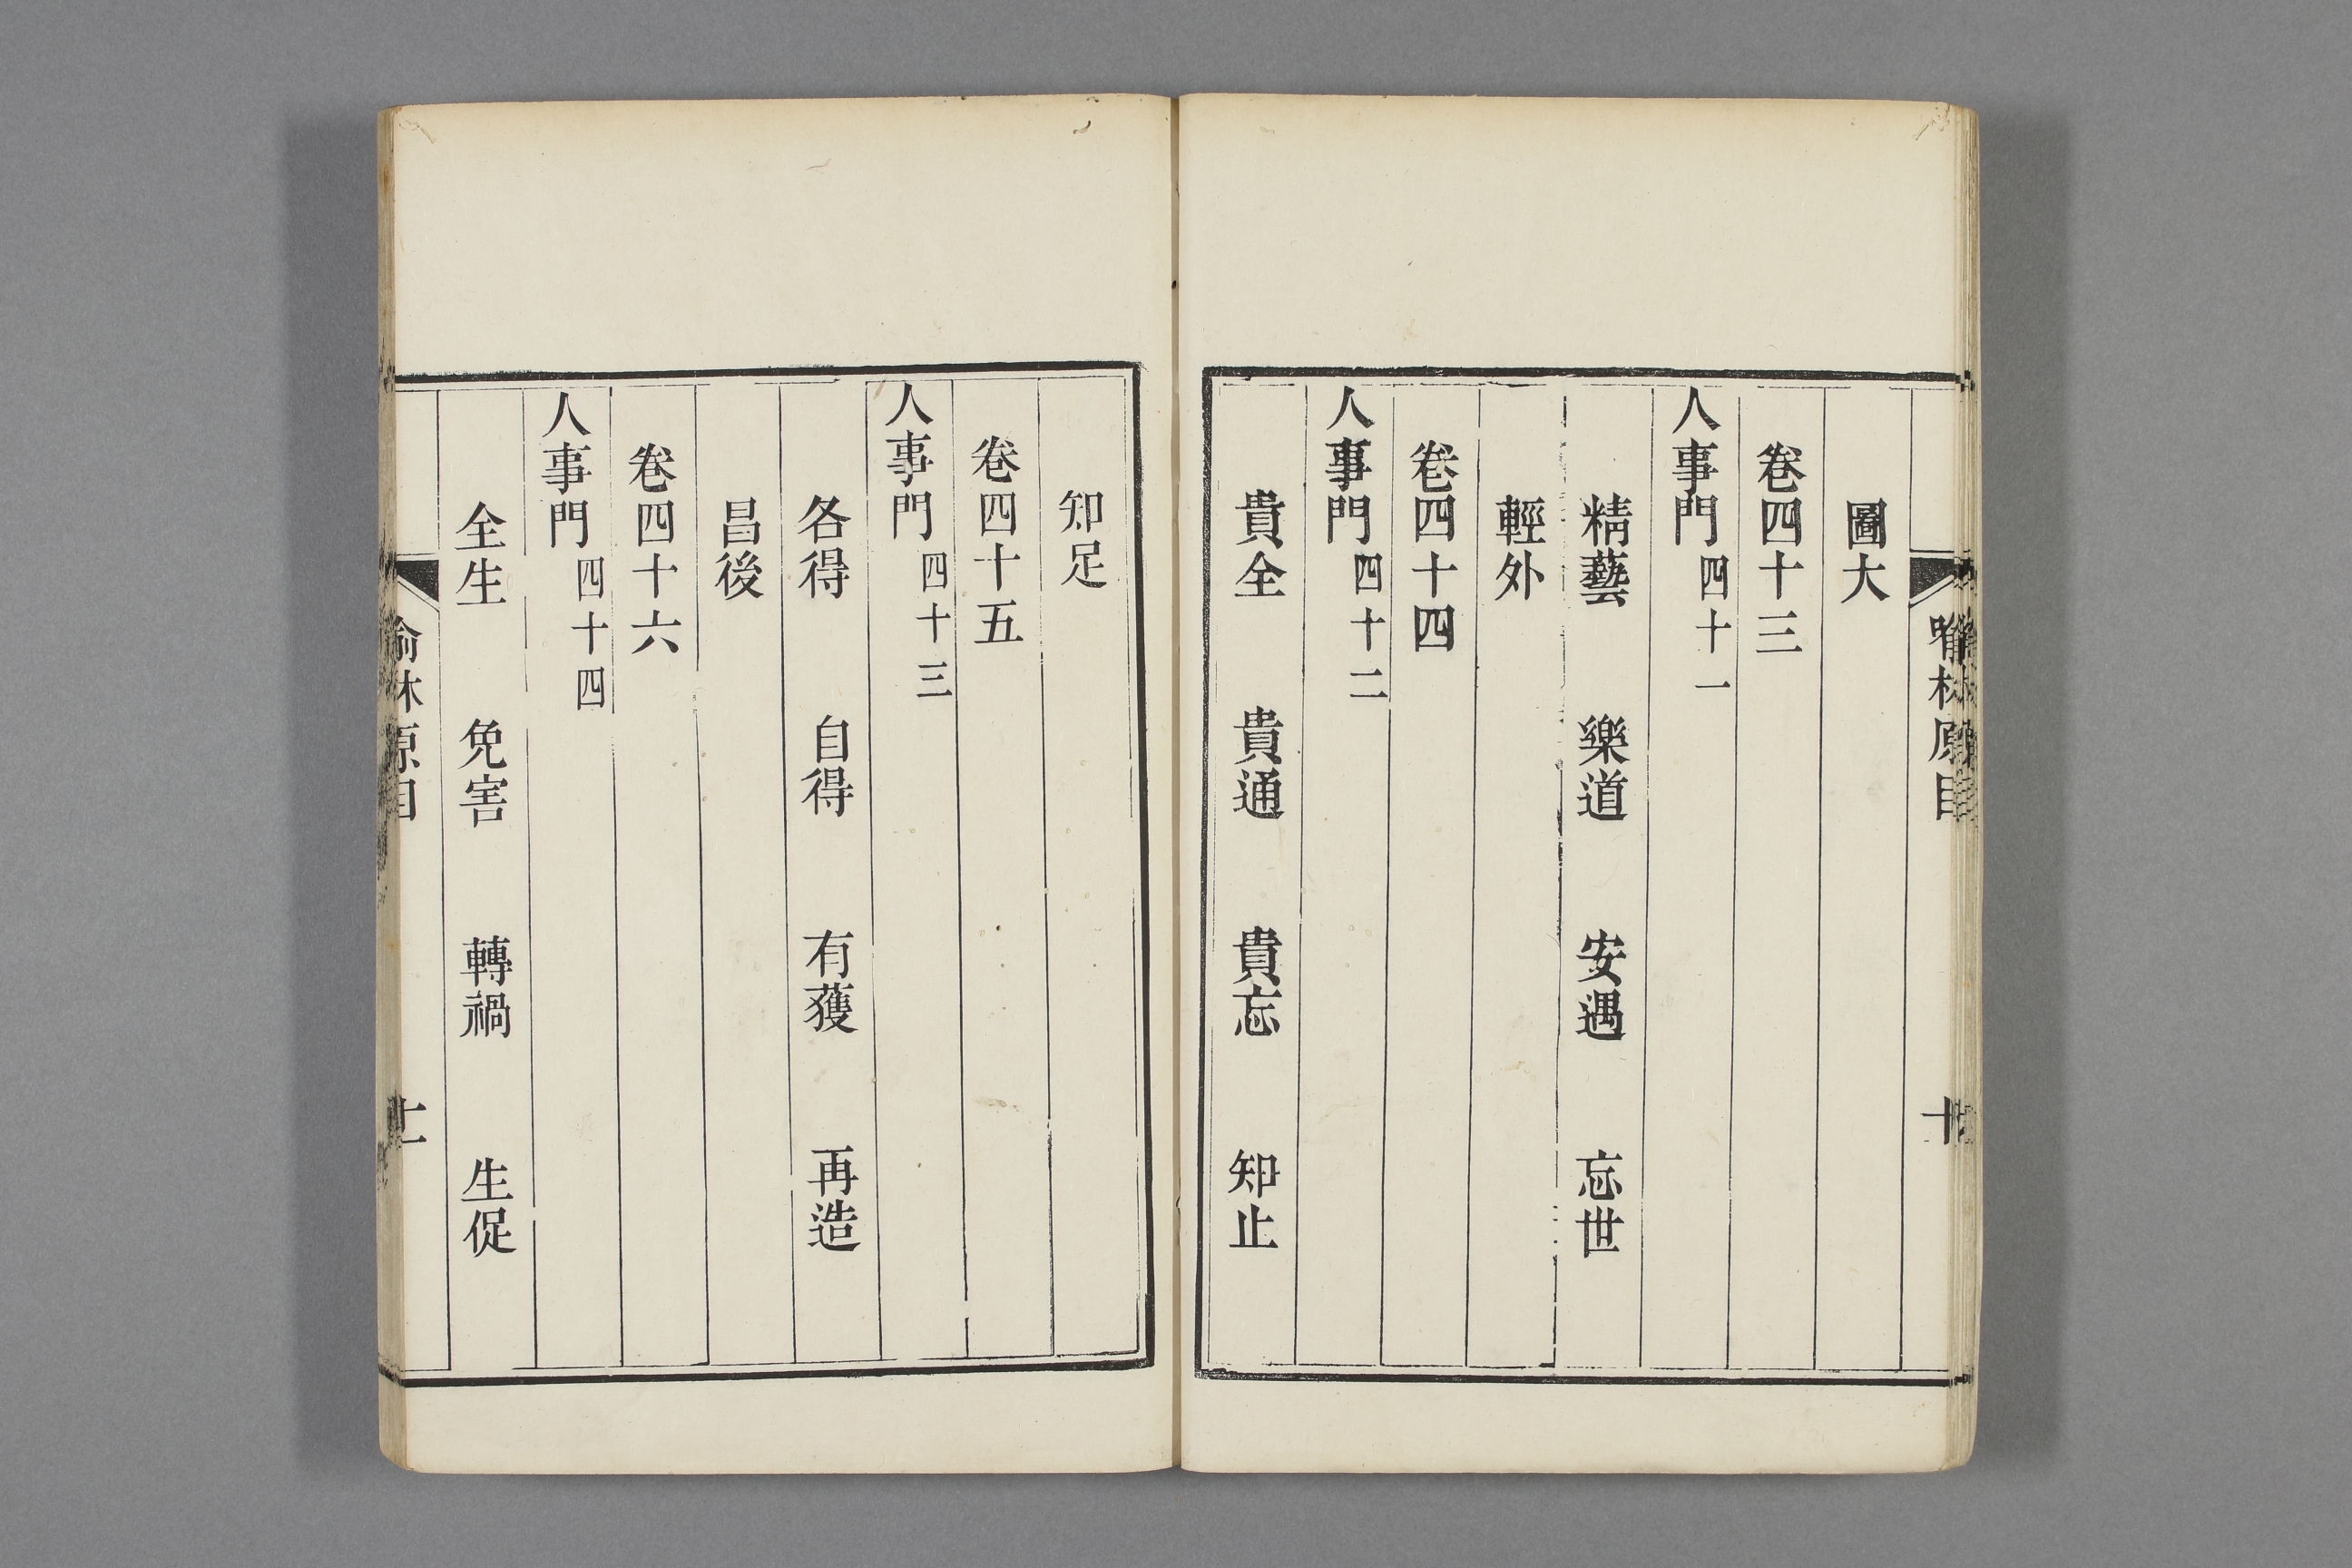 喻林原目
十
圖大
卷四十三
人事門四十一
精藝　樂道　安遇　忘世
輕外
卷四十四
人事門四十二
貴全　貴通　貴忘　知止
知足
卷四十五
人事門四十三
各得　自得　有獲　再造
昌後
卷四十六
人事門四十四
全生　免害　轉禍　生促
喻林原目